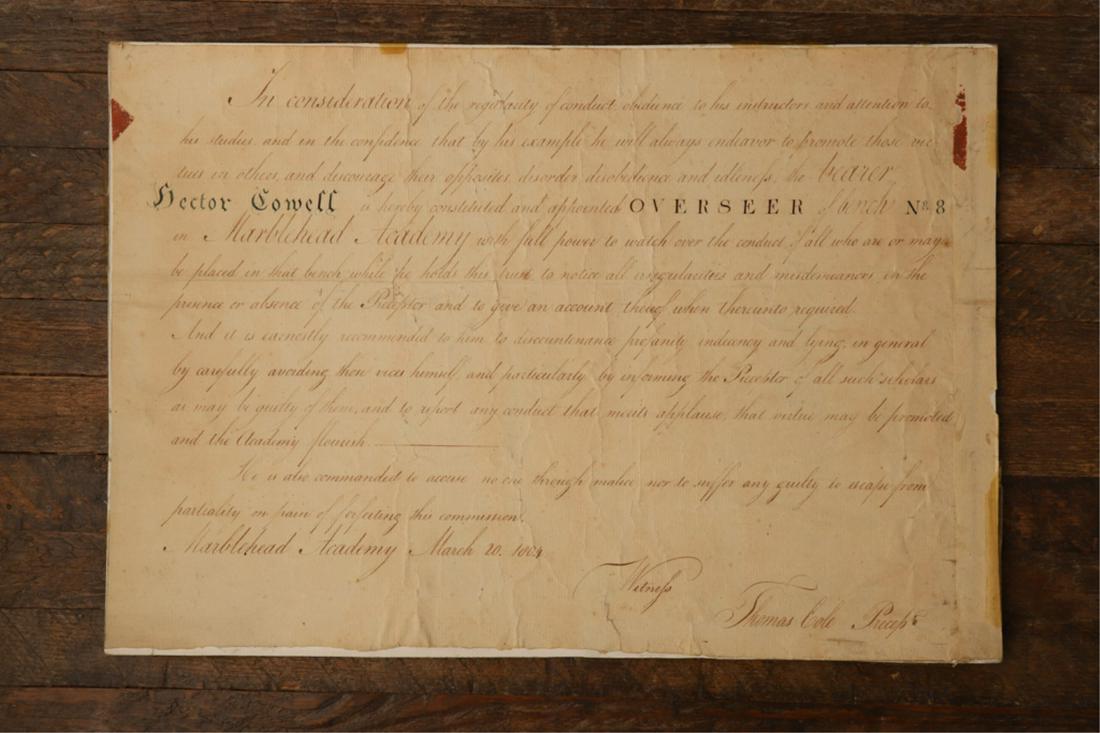 In consideration of the regularity of conduct obedience to his instructors and attention to
his studies and in the confidence that by his example he will always endeavor to promote those vir
tues in others, and discourage their opposites, disorder, disobedience and idleness, the bearer
Hector Cowell is hereby constituted and appointed OVERSEER of bench No. 8
in Marblehead Academy with full power to watch over the conduct of all who are or may
be placed in that bench while he holds this trust to notice all irregularities and misdemeanors in the
presence or absence of the Preceptor and to give an account thereof when thereunto required.
And it is earnestly recommended to him to discountenance profanity, indecency and lying, in general
by carefully avoiding these vices himself, and particularly by informing the Preceptor of all such scholars
as may be guilty of them, and to report any conduct that merits applause, that virtue may be promoted
and the Academy flourish.
He is also commanded to accuse no one through malice nor to suffer any guilty to escape from
partiality on pain of forfeiting this commission.
Marblehead Academy March 20. 1804
Witness
Thomas Cole Precept